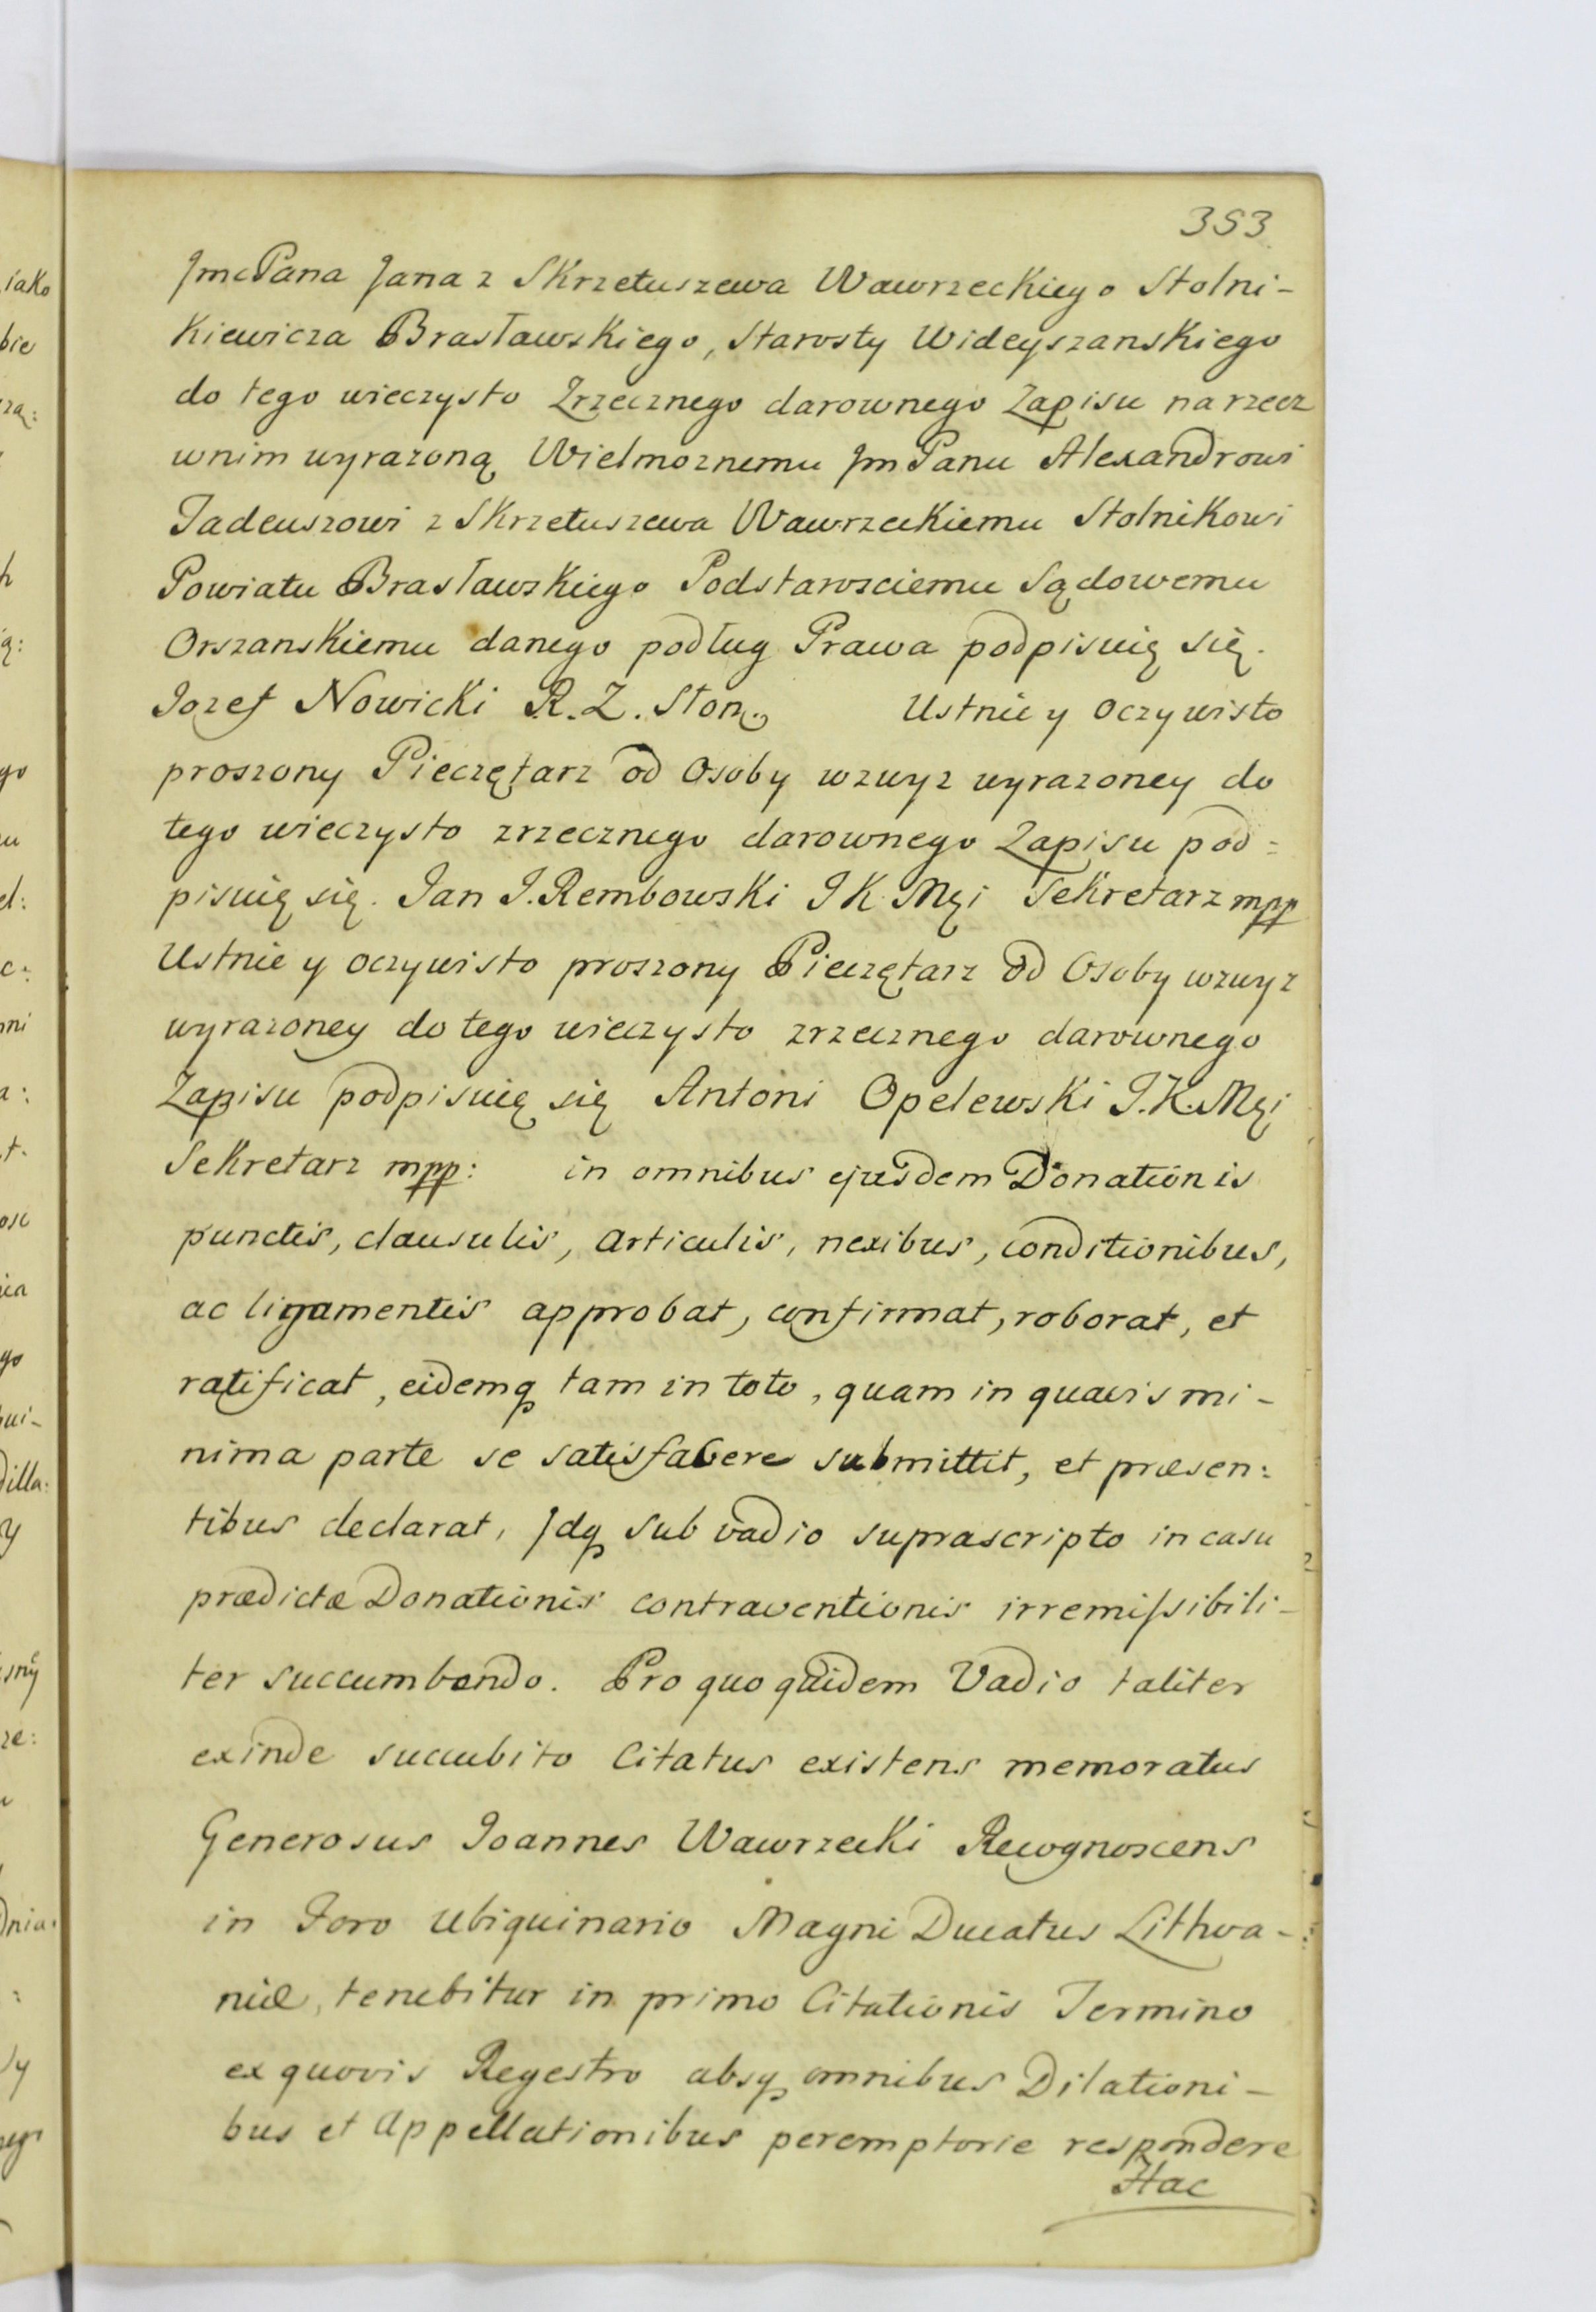 353
JmcPana Jana z Skrzetuszewa Wawrzeckiego Stolni-
kiewicza Brasławskiego, Starosty Wideyszanskiego
do tego wieczysto Zrzecznego darownego Zapisu na rzecz
wnim wyrazoną Wielmoznemu JmPanu Alexandrowi
Tadeuszowi z Skrzetuszewa Wawrzeckiemu Stolnikowi
Powiatu Brasławskiego Podstarosciemu Sądowemu
Orszanskiemu danego podług Prawa podpisuię się.
Jozef Nowicki R. Z. Słon. Ustnie y oczywisto
proszony Pieczętarz od Osoby wzwyz wyrazoney do
tego wieczysto zrzecznego darownego Zapisu pod=
pisuię się. Jan J. Rembowski J K Mci Sekretarz mpp
Ustnie y oczywisto proszony Pieczętarz od Osoby wzwyz
wyrazoney do tego wieczysto zrzecznego darownego
Zapisu podpisuię się Antoni Opelewski J. K. Mci
Sekretarz mpp: in omnibus ejusdem Donationis
punctis, clausulis, articulis, nexibus, conditionibus,
ac ligamentis approbat, confirmat, roborat, et
ratificat, eidemq tam in toto, quam in quavis mi-
nima parte se satisfacere submittit, et præsen:
tibus declarat, Jdq sub vadio suprascripto in casu
prædictæ Donationis contraventionis irremissibili-
ter succumbendo. Pro quo quidem Vadio taliter
exinde succubito Citatus existens memoratus
Generosus Joannes Wawrzecki Recognoscens
in Foro Ubiquinario Magni Ducatus Lithva-
niæ, tenebitur in primo Citationis Termino
ex quovis Regestro absq omnibus Dilationi-
bus et Appellationibus peremptorie respondere
Hac